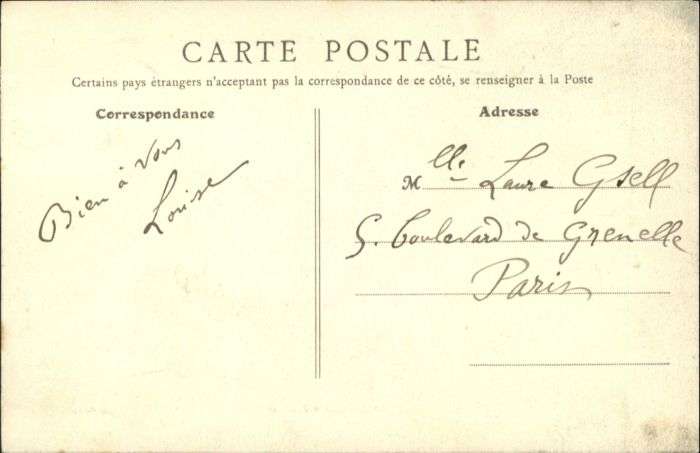 CARTE POSTALE
Certains pays étrangers n'acceptant pas la correspondance de ce côté, se renseigner à la Poste
Correspondance
Bien à vous
Louise
Adresse
Mlle Laure Gsell
5. boulevard de Grenelle
Paris